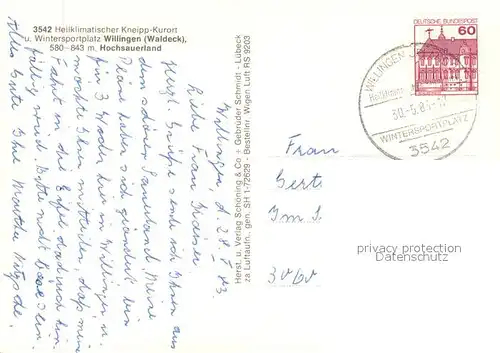 3542 Heilklimatischer Kneipp-Kurort
u. Wintersportplatz Willingen (Waldeck),
580–843 m, Hochsauerland
Willingen d. 28.5.83
Liebe Frau
Herzl. Grüße sende ich Ihnen aus
dem schönen Sauerland. Meine
Pläne haben sich geändert bin
für 3 Wochen hier in Willingen u.
möchte Ihnen mitteilen, daß meine
Fahrt in die Eifel dadurch hin-
fällig wird. Bitte nicht böse sein.
Alles Gute Ihre Martha
Herst. u. Verlag Schöning & Co + Gebrüder Schmidt - Lübeck
za Luftaufn., gen. SH 1-72629 - Bestellnr Wigen Luft RS 9203
DEUTSCHE BUNDESPOST
60
WILLINGEN
30.-5.83-17
WINTERSPORTPLATZ
3542
Frau
Gert
Im S
privacy protection
Datenschutz